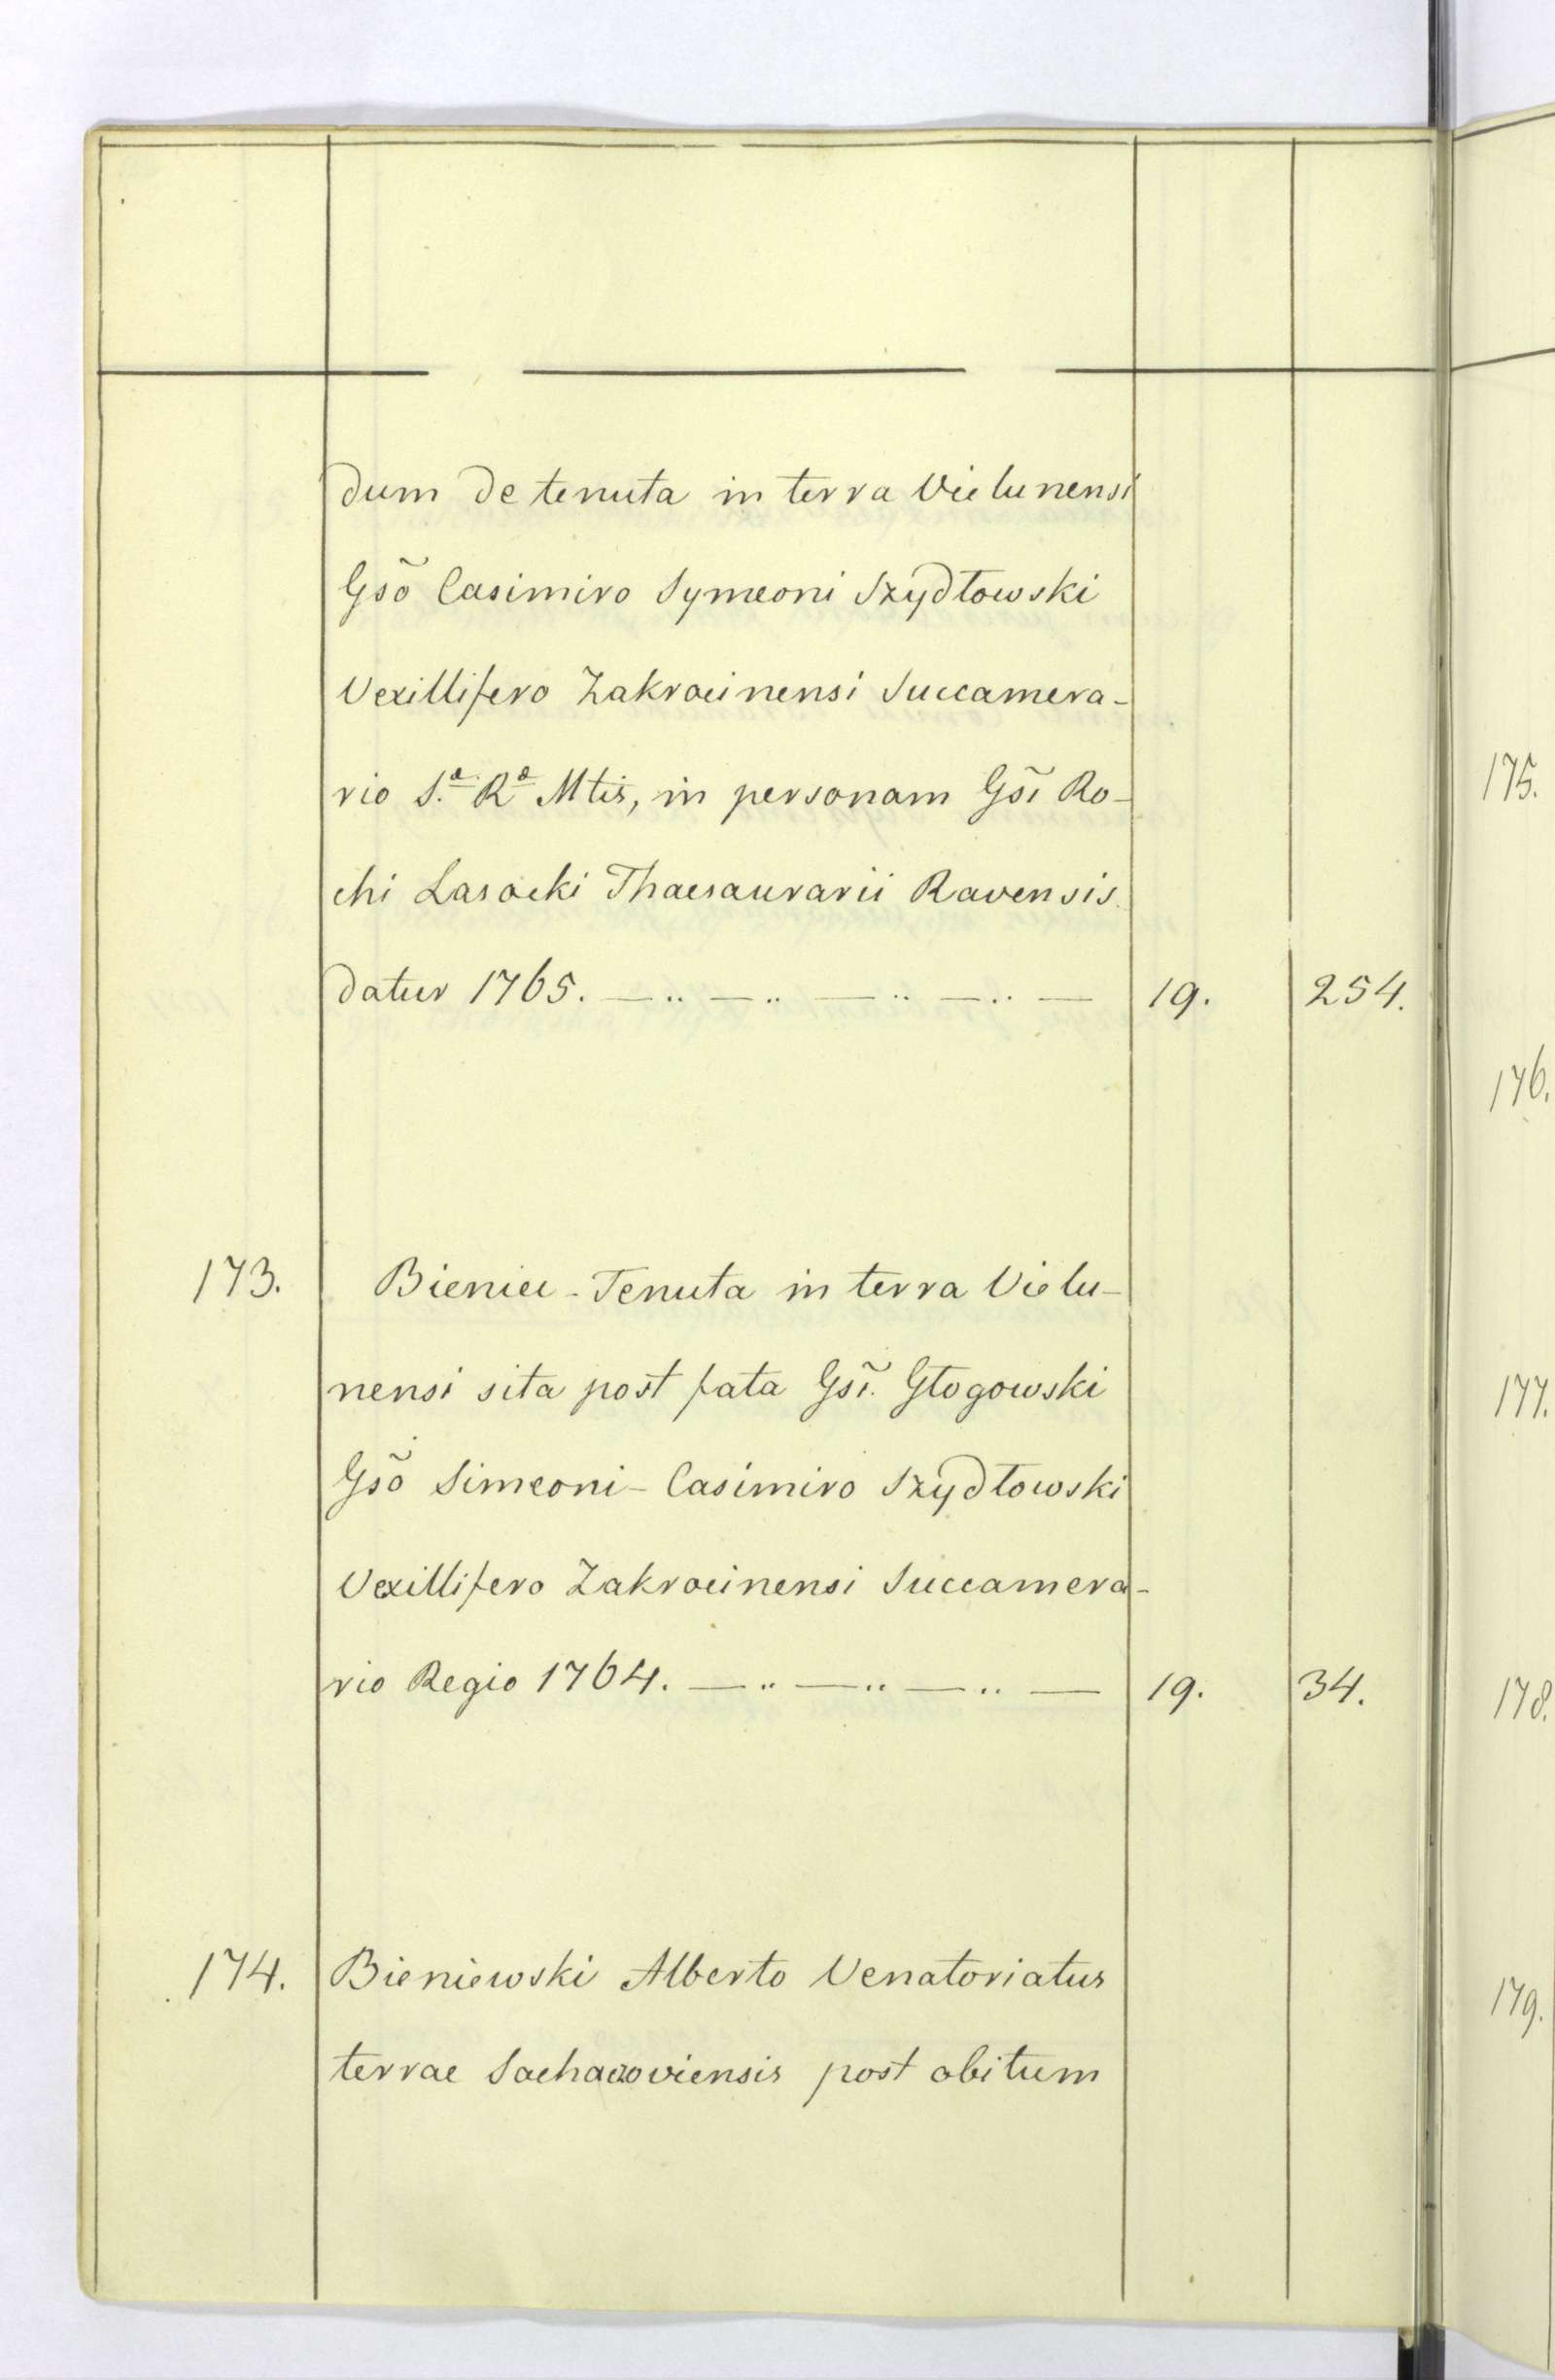 dum de tenuta in terra Vielunensi
Gsõ Casimiro Symeoni Szydłowski
Vexillifero Zakrocinensi Succamera-
rio S.ae Rae Mtis, in personam Gsĩ Ro-
chi Lasocki Thaesaurarii Ravensis
datur 1765. — .. — .. — .. — .. — 19. 254.
173. Bieniec - Tenuta in terra Vielu-
nensi sita post fata Gsĩ. Głogowski
Gsõ Simeoni - Casimiro Szydłowski
Vexillifero Zakrocinensi Succamera-
rio Regio 1764. — .. — .. — .. — 19. 34.
174. Bieniewski Alberto Venatoriatus
terrae Sochaczoviensis post obitum
175.
176.
177.
178.
179.